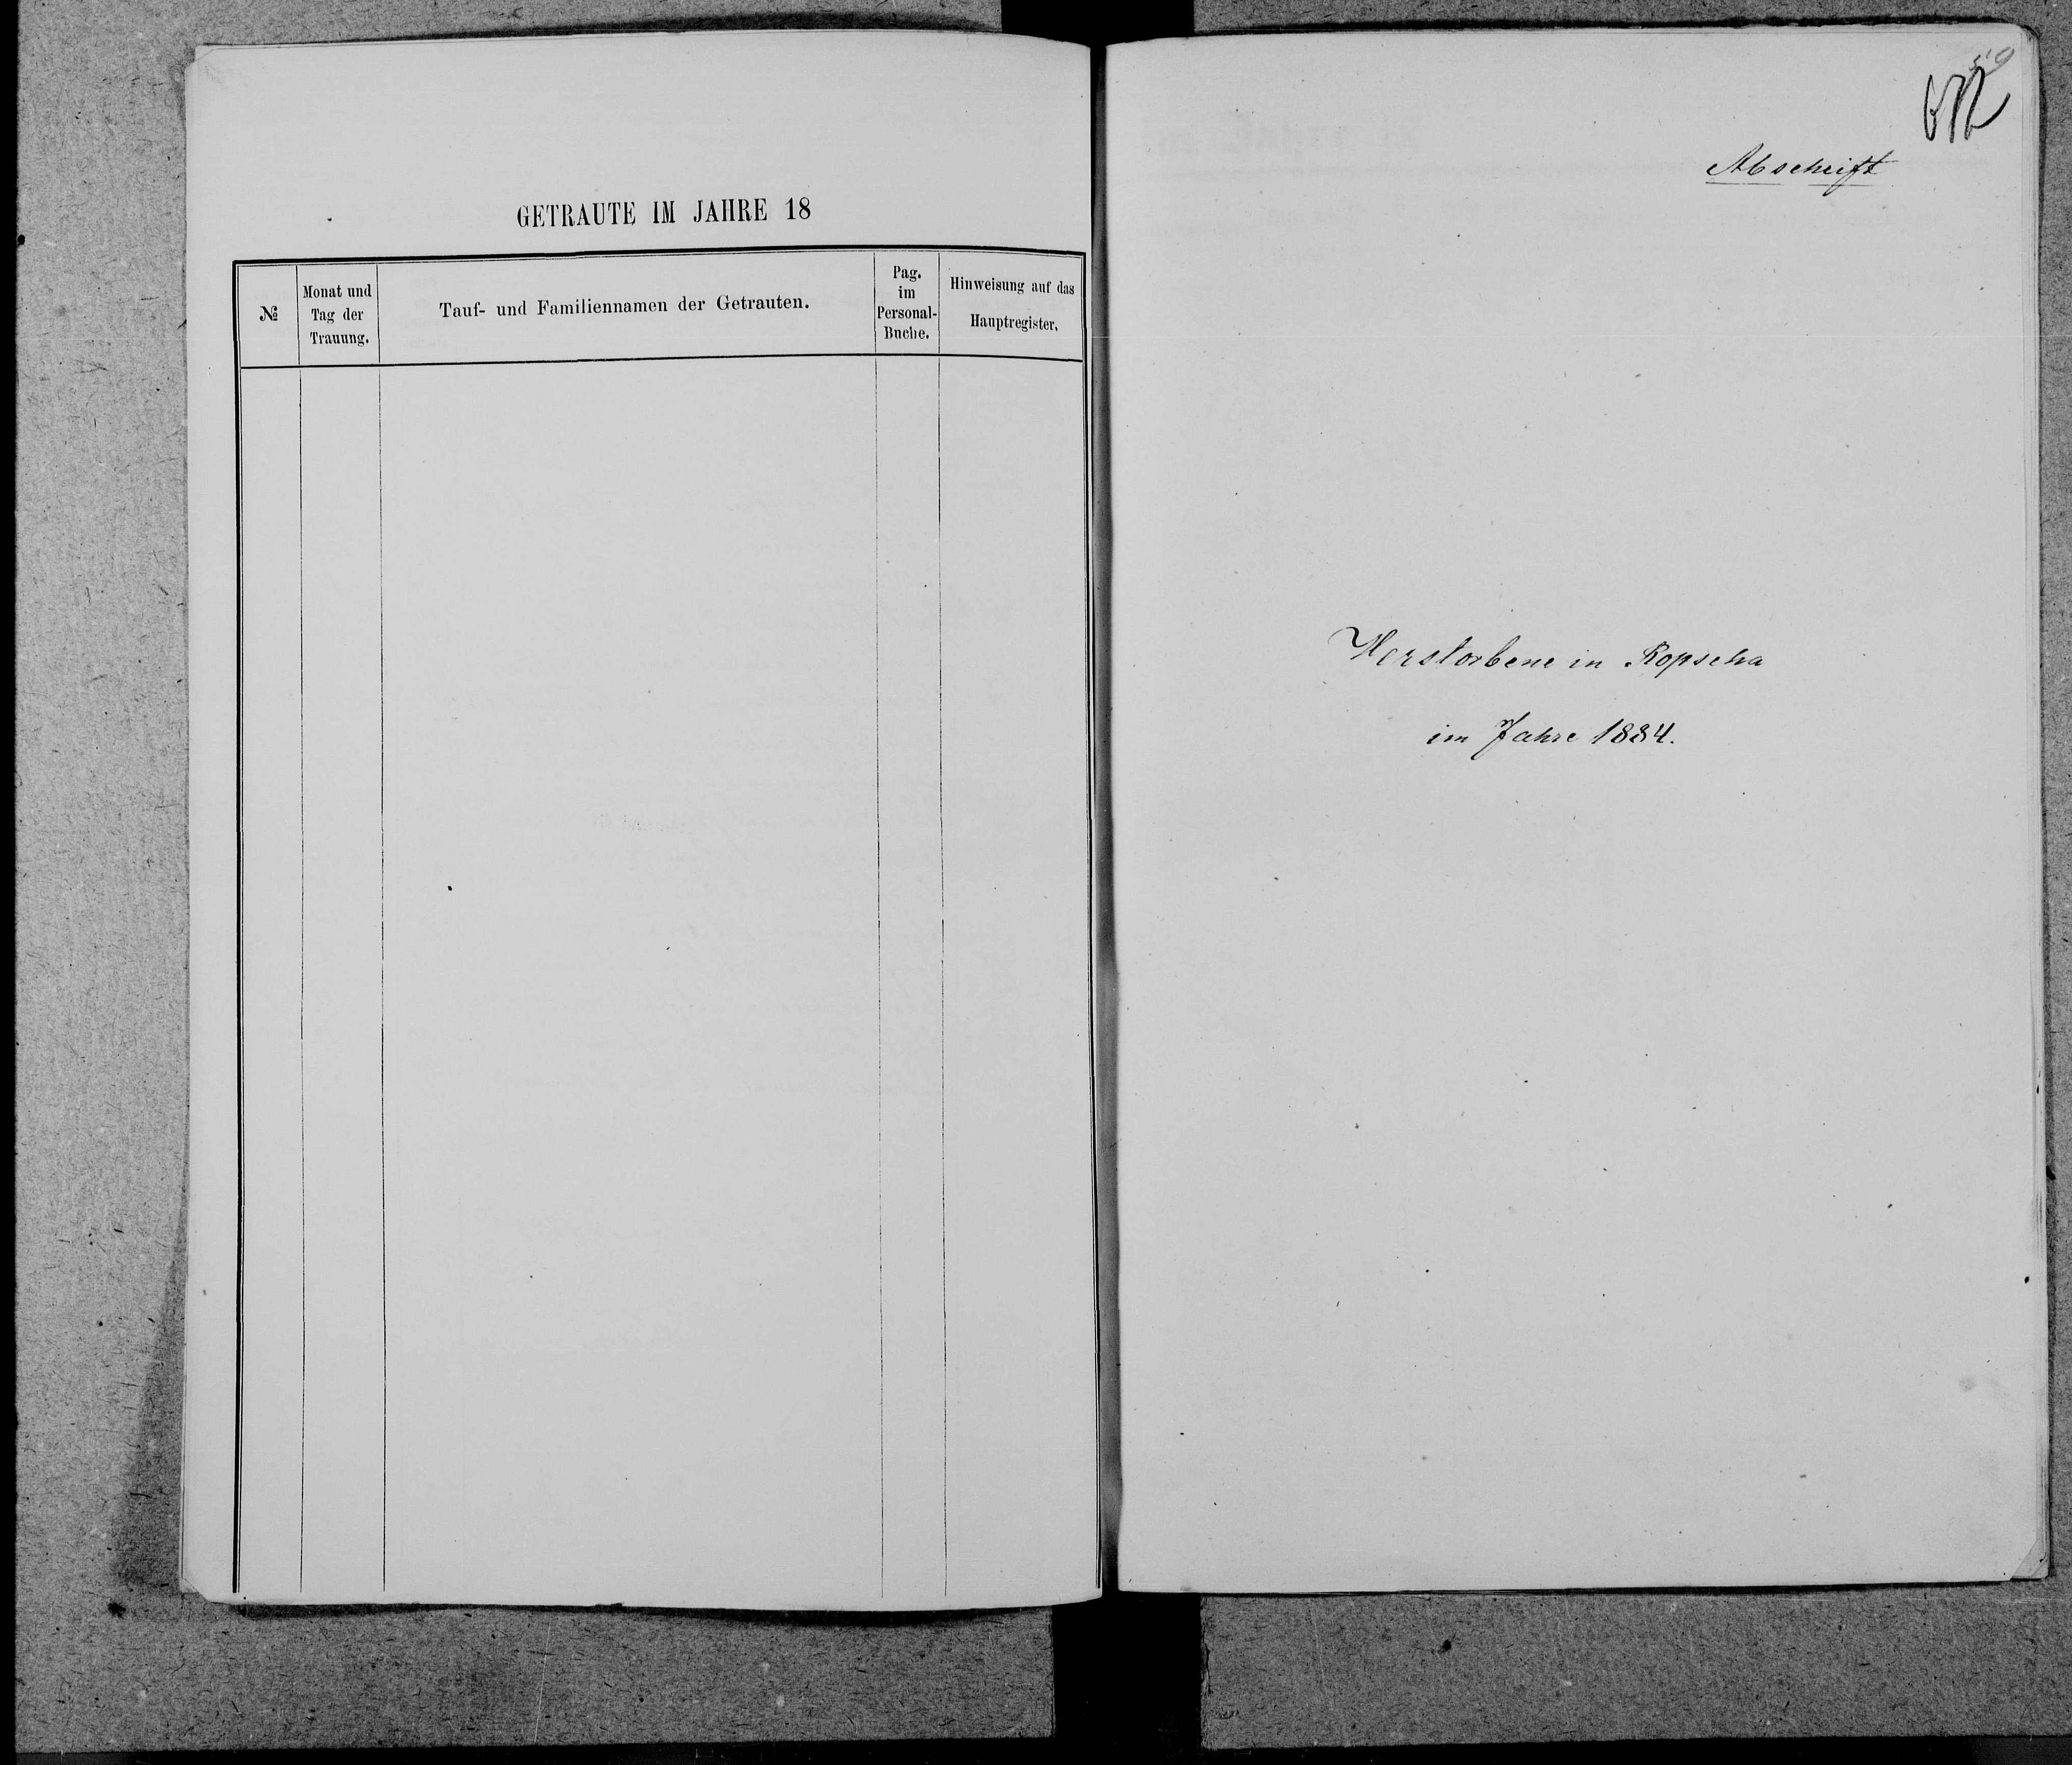 GETRAUTE IM JAHRE 18
№
Monat und
Tag der
Trauung.
Tauf- und Familiennamen der Getrauten.
Pag.
im
Personal-
Buche.
Hinweisung auf das
Hauptregister.
59
672
Abschrift
Verstorbene in Ropscha
im Jahre 1884.